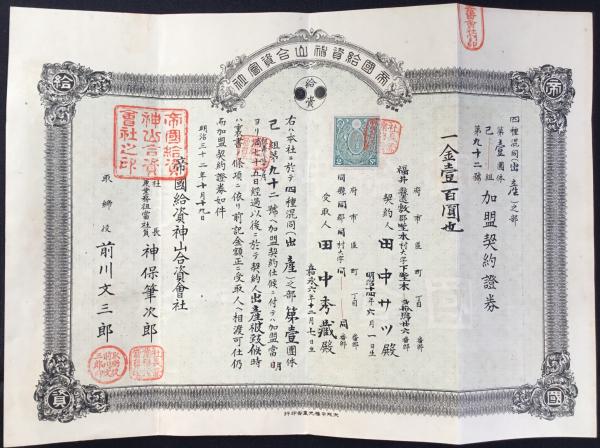 帝國給資神山合資會社
給
帝
資
國
給資
四種混同(出產)之部
第壹團体
己組
第九十二號
加盟契約證券
一金壹百圓也
府 市 區 町 丁目 番地
福井縣
契約人 田中サツ殿
明治十四年六月一日生
府 市 區 町 丁目 番地
同縣同郡同村大字同 同番
受取人 田中秀藏殿
嘉永六年十二月七日生
右ハ本社ニ於テ四種混同(出產)之部第壹團体
己組第九十二號ヘ加盟契約仕候ニ付テハ加盟當明
ヨリ滿七十五日經過以後ニ於テ契約人出產被致候時
ハ裏書ノ條項ニ依リ前記金額正ニ受取人ヘ相渡可仕仍
而加盟契約證券如件
明治三十二年十月十九日
帝國給資神山合資會社
社長
業務擔當社員 神保筆次郎
取締役 前川文三郎
帝國給資
神山合資
會社之印